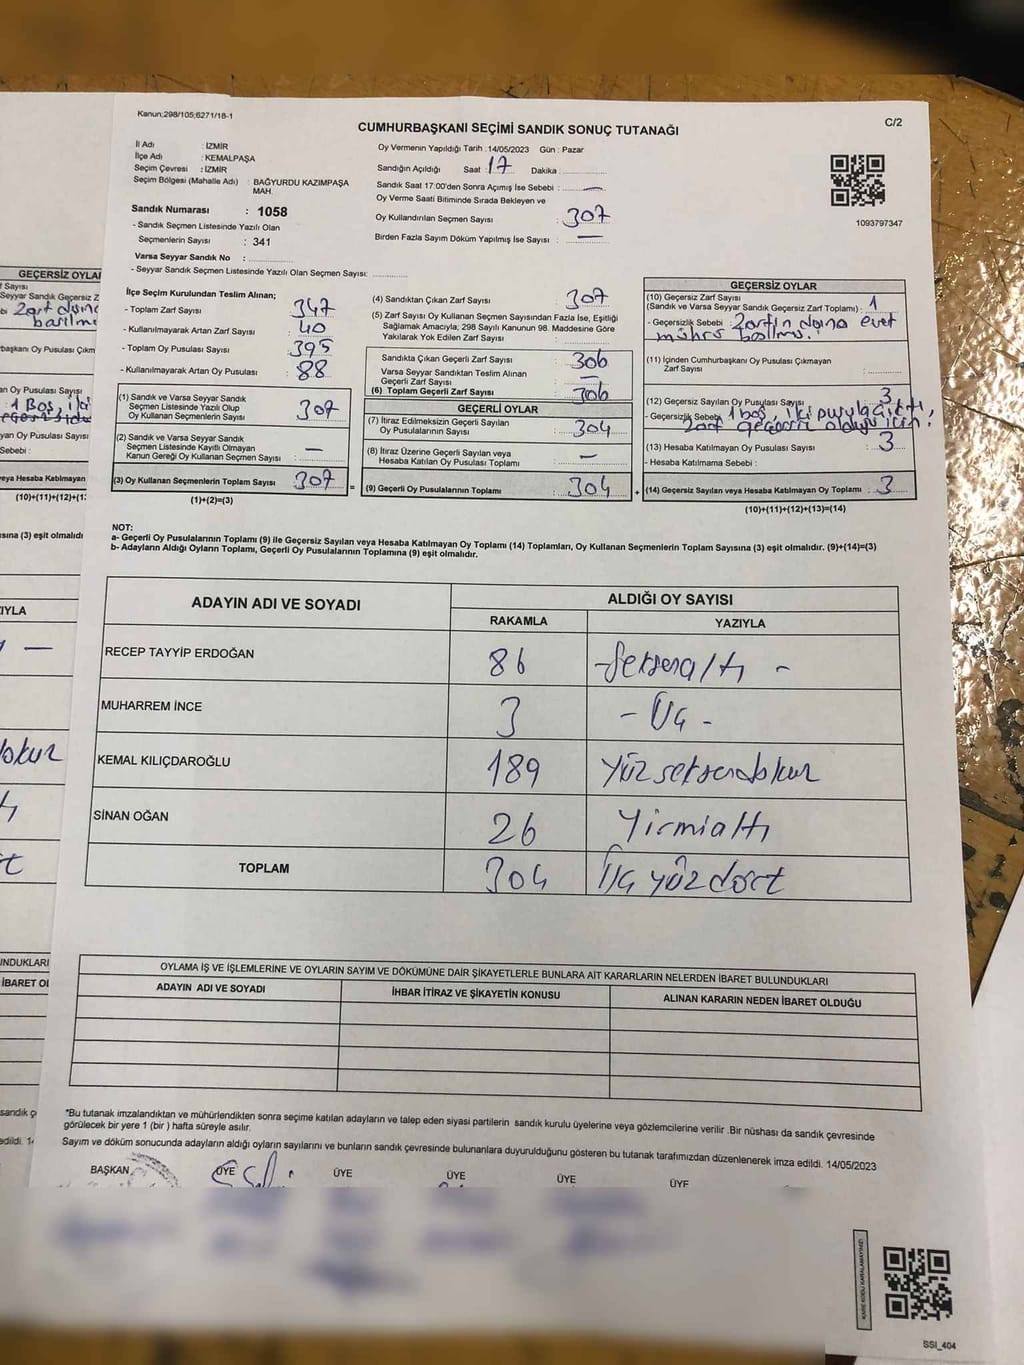 Kanun:298/105;6271/18-1
CUMHURBAŞKANI SEÇİMİ SANDIK SONUÇ TUTANAĞI
C/2
İl Adı : İZMİR
İlçe Adı : KEMALPAŞA
Seçim Çevresi : İZMİR
Seçim Bölgesi (Mahalle Adı) : BAĞYURDU KAZIMPAŞA
MAH.
Sandık Numarası : 1058
- Sandık Seçmen Listesinde Yazılı Olan
Seçmenlerin Sayısı : 341
Varsa Seyyar Sandık No :
- Seyyar Sandık Seçmen Listesinde Yazılı Olan Seçmen Sayısı:
Oy Vermenin Yapıldığı Tarih :14/05/2023 Gün : Pazar
Sandığın Açıldığı Saat : 17 Dakika :
Sandık Saat 17:00'den Sonra Açımış İse Sebebi : —
Oy Verme Saati Bitiminde Sırada Bekleyen ve
Oy Kullandırılan Seçmen Sayısı : 307
Birden Fazla Sayım Döküm Yapılmış İse Sayısı : —
1093797347
İlçe Seçim Kurulundan Teslim Alınan;
- Toplam Zarf Sayısı : 347
- Kullanılmayarak Artan Zarf Sayısı : 40
- Toplam Oy Pusulası Sayısı : 395
- Kullanılmayarak Artan Oy Pusulası : 88
(1) Sandık ve Varsa Seyyar Sandık
Seçmen Listesinde Yazılı Olup
Oy Kullanan Seçmenlerin Sayısı : 307
(2) Sandık ve Varsa Seyyar Sandık
Seçmen Listesinde Kayıtlı Olmayan
Kanun Gereği Oy Kullanan Seçmen Sayısı : —
(3) Oy Kullanan Seçmenlerin Toplam Sayısı : 307
(1)+(2)=(3)
(4) Sandıktan Çıkan Zarf Sayısı : 307
(5) Zarf Sayısı Oy Kullanan Seçmen Sayısından Fazla İse, Eşitliği
Sağlamak Amacıyla; 298 Sayılı Kanunun 98. Maddesine Göre
Yakılarak Yok Edilen Zarf Sayısı :
Sandıkta Çıkan Geçerli Zarf Sayısı : 306
Varsa Seyyar Sandıktan Teslim Alınan
Geçerli Zarf Sayısı : —
(6) Toplam Geçerli Zarf Sayısı : 306
GEÇERLİ OYLAR
(7) İtiraz Edilmeksizin Geçerli Sayılan
Oy Pusulalarının Sayısı : 304
(8) İtiraz Üzerine Geçerli Sayılan veya
Hesaba Katılan Oy Pusulası Toplamı : —
(9) Geçerli Oy Pusulalarının Toplamı : 304
GEÇERSİZ OYLAR
(10) Geçersiz Zarf Sayısı
(Sandık ve Varsa Seyyar Sandık Geçersiz Zarf Toplamı) : 1
- Geçersizlik Sebebi : Zarfın dışına evet
mührü basılmış.
(11) İçinden Cumhurbaşkanı Oy Pusulası Çıkmayan
Zarf Sayısı :
(12) Geçersiz Sayılan Oy Pusulası Sayısı : 3
- Geçersizlik Sebebi 1 boş, iki pusula çıktı,
zarf geçersiz olduğu için.
(13) Hesaba Katılmayan Oy Pusulası Sayısı : 3
- Hesaba Katılmama Sebebi :
(14) Geçersiz Sayılan veya Hesaba Katılmayan Oy Toplamı : 3
(10)+(11)+(12)+(13)=(14)
NOT:
a- Geçerli Oy Pusulalarının Toplamı (9) ile Geçersiz Sayılan veya Hesaba Katılmayan Oy Toplamı (14) Toplamları, Oy Kullanan Seçmenlerin Toplam Sayısına (3) eşit olmalıdır. (9)+(14)=(3)
b- Adayların Aldığı Oyların Toplamı, Geçerli Oy Pusulalarının Toplamına (9) eşit olmalıdır.
ADAYIN ADI VE SOYADI
ALDIĞI OY SAYISI
RAKAMLA YAZIYLA
RECEP TAYYİP ERDOĞAN 86 -Seksenaltı -
MUHARREM İNCE 3 - Üç -
KEMAL KILIÇDAROĞLU 189 Yüzseksendokuz
SİNAN OĞAN 26 Yirmialtı
TOPLAM 304 Üç yüzdört
OYLAMA İŞ VE İŞLEMLERİNE VE OYLARIN SAYIM VE DÖKÜMÜNE DAİR ŞİKAYETLERLE BUNLARA AİT KARARLARIN NELERDEN İBARET BULUNDUKLARI
ADAYIN ADI VE SOYADI İHBAR İTİRAZ VE ŞİKAYETİN KONUSU ALINAN KARARIN NEDEN İBARET OLDUĞU
*Bu tutanak imzalandıktan ve mühürlendikten sonra seçime katılan adayların ve talep eden siyasi partilerin sandık kurulu üyelerine veya gözlemcilerine verilir .Bir nüshası da sandık çevresinde
görülecek bir yere 1 (bir ) hafta süreyle asılır.
Sayım ve döküm sonucunda adayların aldığı oyların sayılarını ve bunların sandık çevresinde bulunanlara duyurulduğunu gösteren bu tutanak tarafımızdan düzenlenerek imza edildi. 14/05/2023
BAŞKAN ÜYE ÜYE ÜYE ÜYE ÜYE
KARE KODU KARALAMAYINIZ!
SSI_404